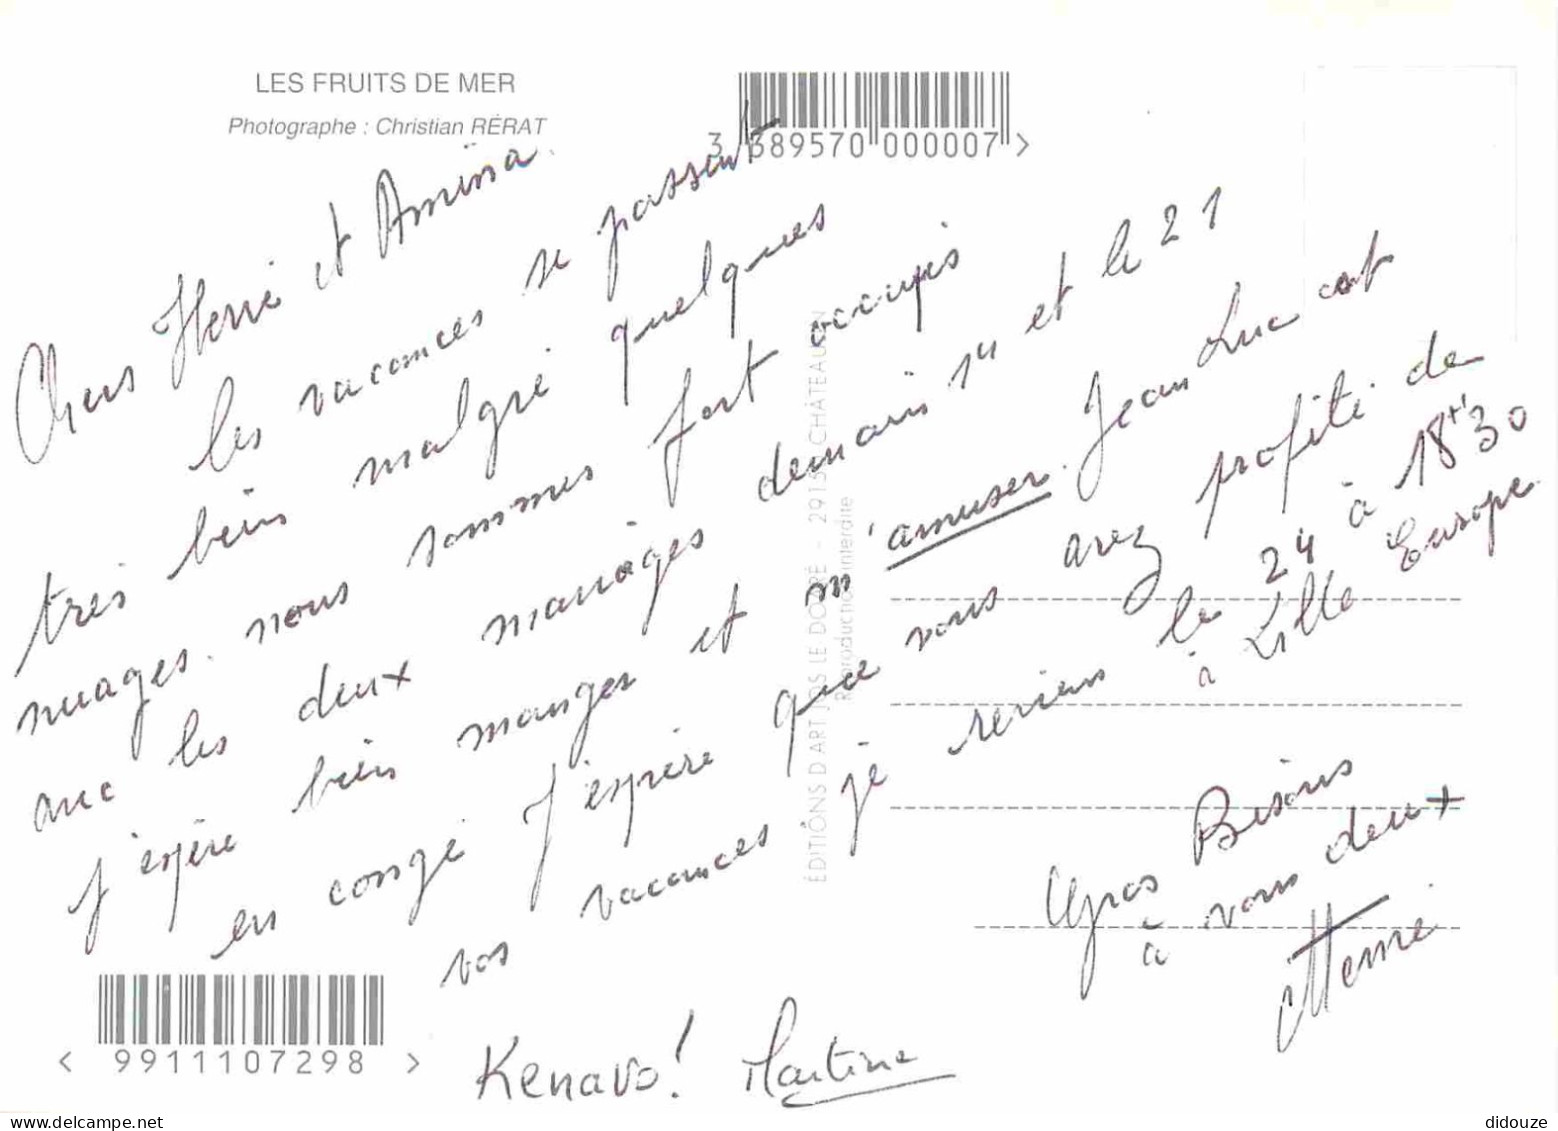 LES FRUITS DE MER
Photographe : Christian RÉRAT
3 389570 000007 >
Chers Hervé et Amina.
les vacances se passent
très bien malgré quelques
nuages. nous sommes fort occupés
avec les deux mariages demain 1er et le 21
j'espère bien manger et m'amuser. Jean Luc est
en congé J'espère que vous avez profité de
vos vacances. je reviens le 24 à 18H30
à Lille Europe.
Gros Bisous
à vous deux
Kenavo! Martine
ÉDITIONS D'ART JOS LE DOARÉ - 2915 CHÂTEAULIN
Reproduction interdite
< 9911107298 >
didouze